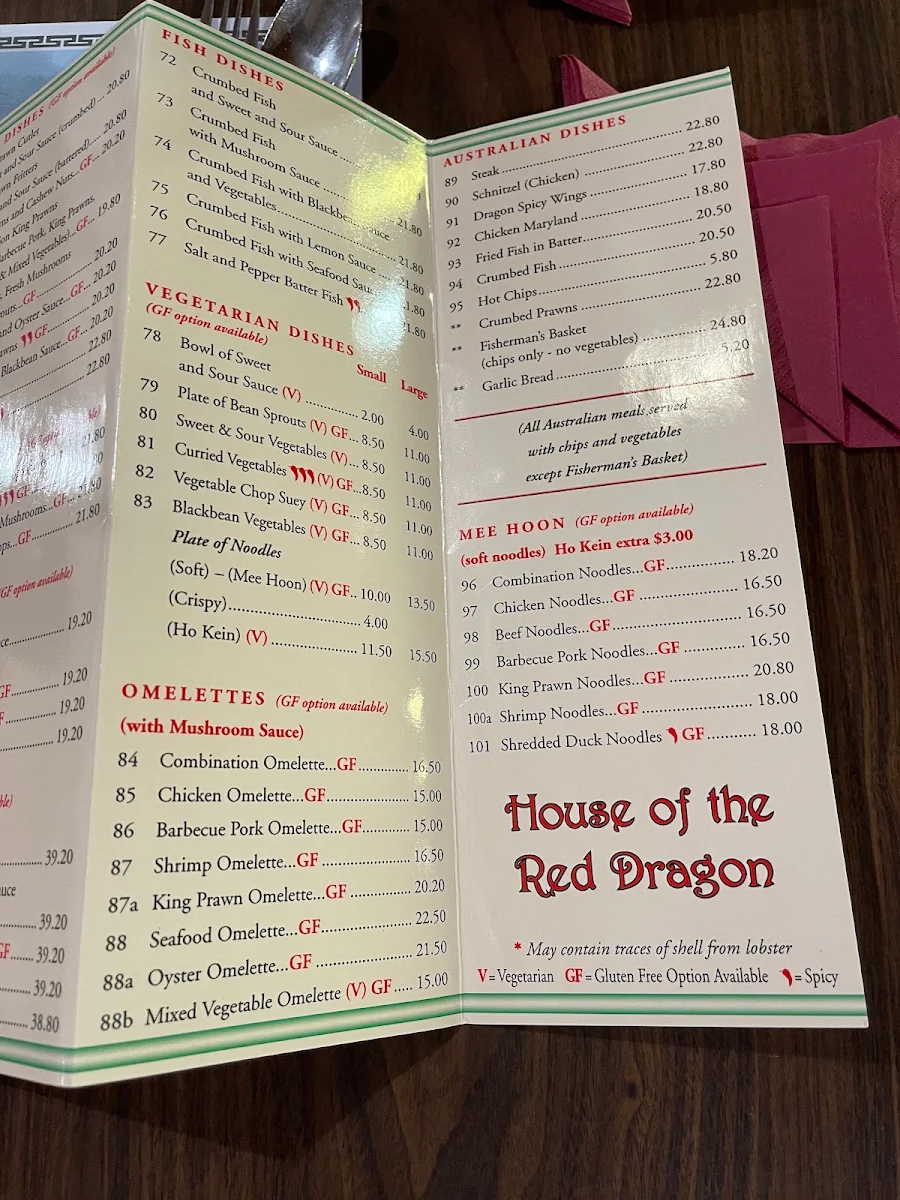 DISHES (GF option available)
and Sour Sauce (crumbed) ... 20.80
and Sour Sauce (battered) .. 20.80
and Cashew Nuts...GF... 20.20
King Prawns
Barbecue Pork, King Prawns,
& Mixed Vegetables)...GF... 19.80
Fresh Mushrooms
GF 20.20
and Oyster Sauce...GF... 20.20
GF 20.20
Blackbean Sauce...GF... 20.20
22.80
22.80
21.80
GF
Mushrooms...GF... 21.80
GF 21.80
(GF option available)
19.20
GF 19.20
19.20
19.20
39.20
39.20
GF 39.20
39.20
38.80
FISH DISHES
72 Crumbed Fish
and Sweet and Sour Sauce
73 Crumbed Fish
with Mushroom Sauce
74 Crumbed Fish with Blackbean Sauce
and Vegetables 21.80
75 Crumbed Fish with Lemon Sauce 21.80
76 Crumbed Fish with Seafood Sauce 21.80
77 Salt and Pepper Batter Fish 21.80
VEGETARIAN DISHES
(GF option available)
Small Large
78 Bowl of Sweet
and Sour Sauce (V) 2.00 4.00
79 Plate of Bean Sprouts (V) GF... 8.50 11.00
80 Sweet & Sour Vegetables (V)... 8.50 11.00
81 Curried Vegetables (V) GF...8.50 11.00
82 Vegetable Chop Suey (V) GF... 8.50 11.00
83 Blackbean Vegetables (V) GF... 8.50 11.00
Plate of Noodles
(Soft) – (Mee Hoon) (V) GF.. 10.00 13.50
(Crispy) 4.00
(Ho Kein) (V) 11.50 15.50
OMELETTES (GF option available)
(with Mushroom Sauce)
84 Combination Omelette...GF 16.50
85 Chicken Omelette...GF 15.00
86 Barbecue Pork Omelette...GF 15.00
87 Shrimp Omelette...GF 16.50
87a King Prawn Omelette...GF 20.20
88 Seafood Omelette...GF 22.50
88a Oyster Omelette...GF 21.50
88b Mixed Vegetable Omelette (V) GF..... 15.00
AUSTRALIAN DISHES
89 Steak 22.80
90 Schnitzel (Chicken) 22.80
91 Dragon Spicy Wings 17.80
92 Chicken Maryland 18.80
93 Fried Fish in Batter 20.50
94 Crumbed Fish 20.50
95 Hot Chips 5.80
** Crumbed Prawns 22.80
** Fisherman's Basket
(chips only - no vegetables) 24.80
** Garlic Bread 5.20
(All Australian meals served
with chips and vegetables
except Fisherman's Basket)
MEE HOON (GF option available)
(soft noodles) Ho Kein extra $3.00
96 Combination Noodles...GF 18.20
97 Chicken Noodles...GF 16.50
98 Beef Noodles...GF 16.50
99 Barbecue Pork Noodles...GF 16.50
100 King Prawn Noodles...GF 20.80
100a Shrimp Noodles...GF 18.00
101 Shredded Duck Noodles GF 18.00
House of the
Red Dragon
* May contain traces of shell from lobster
V = Vegetarian GF = Gluten Free Option Available = Spicy